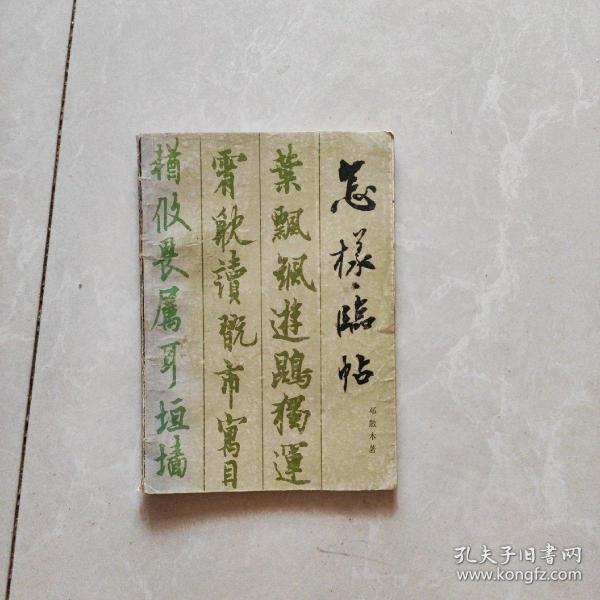 怎樣临帖
邓散木著
葉飄飖遊鵾獨運
霄耽讀翫市寓目
輶攸畏屬耳垣墻
孔夫子旧书网
www.kongfz.com